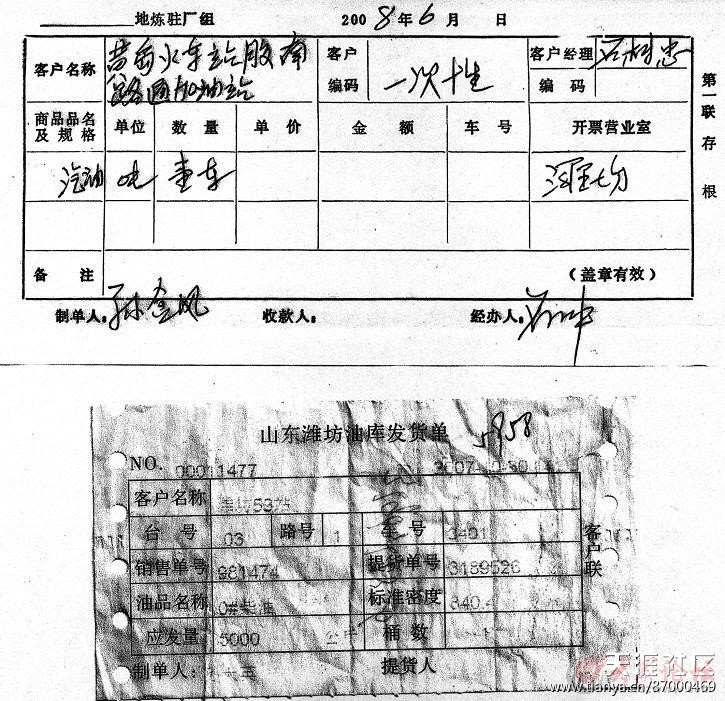 地炼驻厂组 2008年6月 日
客户名称 黄岛火车站胶南路通加油站 客户编码 一次性 客户经理编码
商品品名及规格 单位 数量 单价 金额 车号 开票营业室
汽油 吨 壹车
备注 (盖章有效)
制单人: 收款人: 经办人:
第一联存根
山东潍坊油库发货单 5958
NO. 00011477
客户名称
台号 03 路号 1 车号 3401
销售单号 981474 提货单号 3189526
油品名称 0#柴油 标准密度 840.4
应发量 5000 公斤 桶数
制单人: 提货人
客户联
天涯社区
www.tianya.cn/87000469